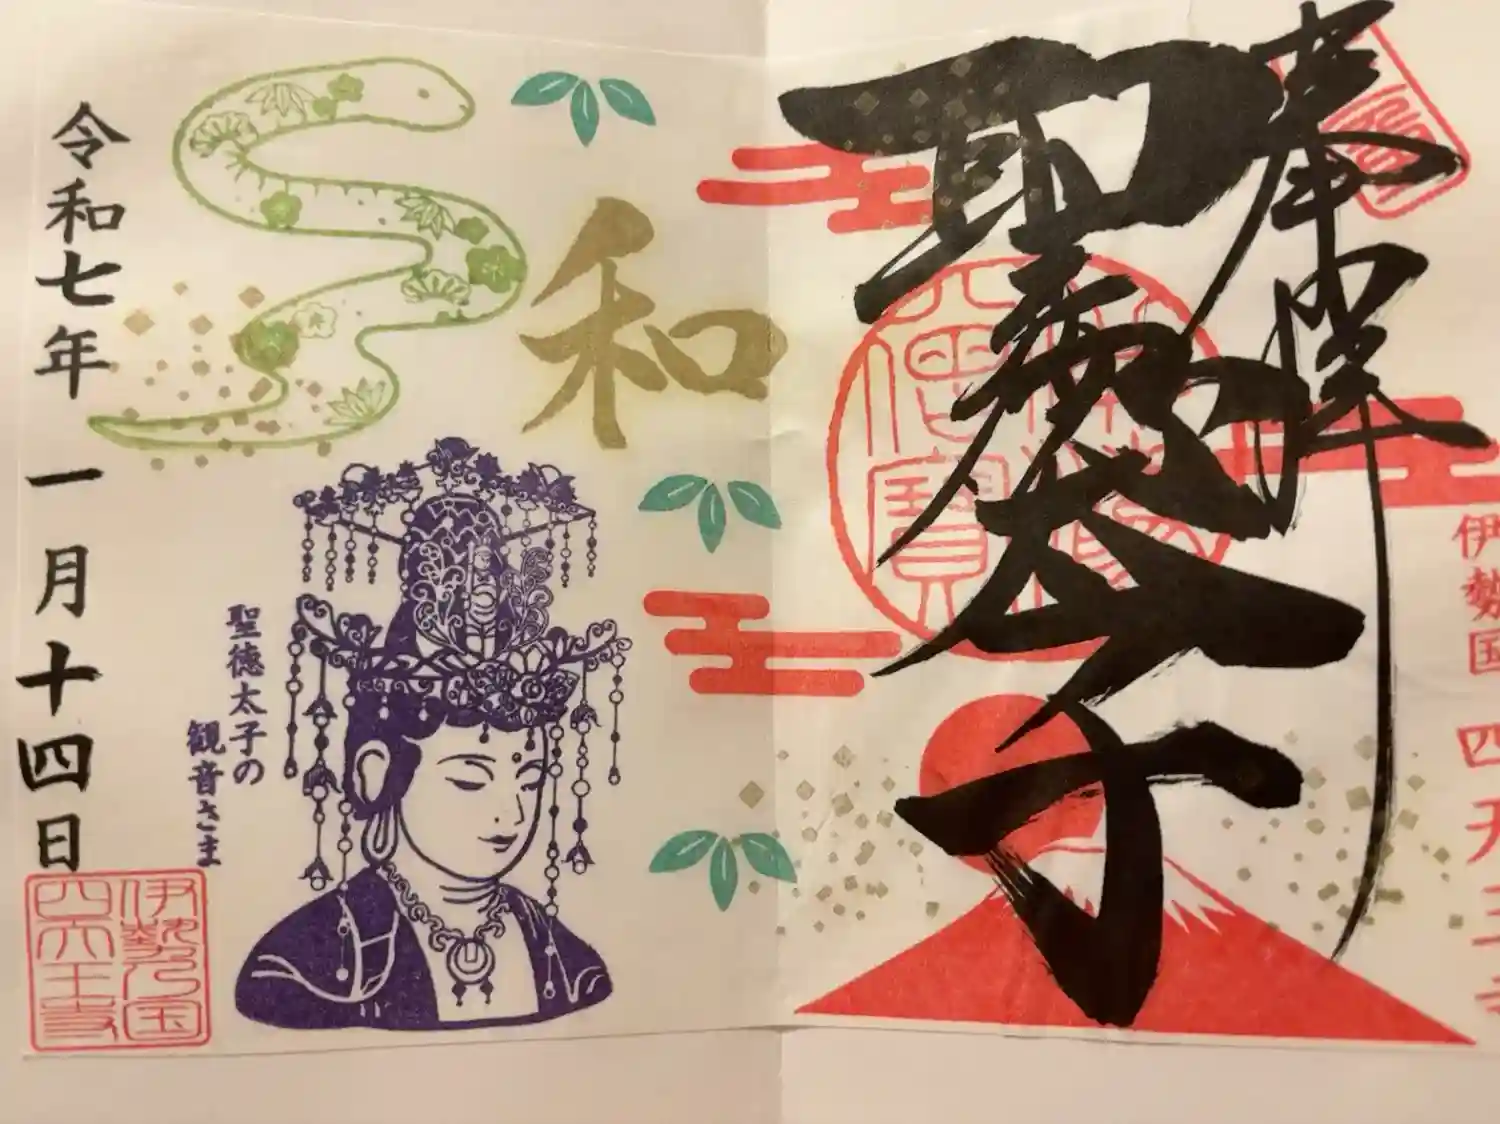 奉拝
聖徳太子
伊勢国
四天王寺
和
聖徳太子の
観音さま
令和七年一月十四日
伊勢乃国
四天王寺